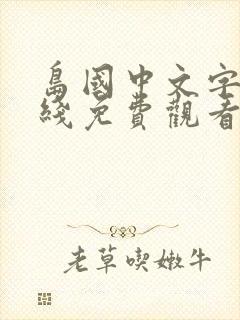 島國中文字
綫免費觀看
老草喫嫩牛